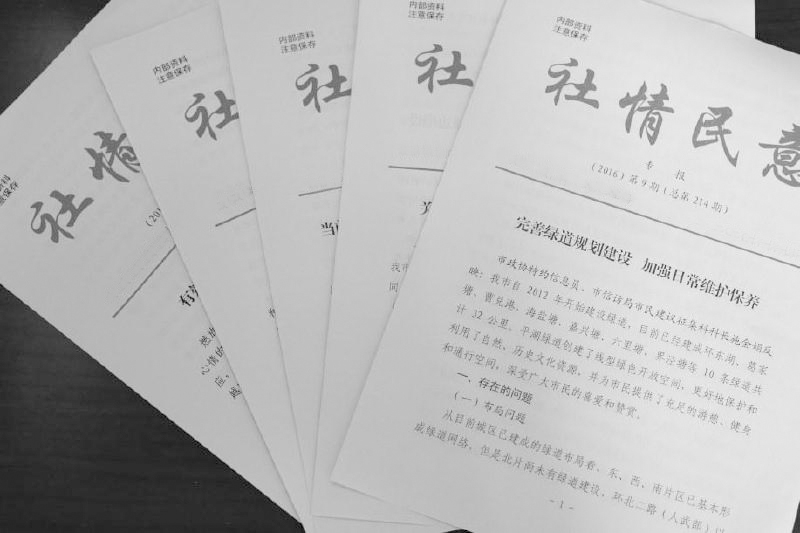 内部资料
注意保存
社情民意
专 报
（2016）第9期（总第214期）
完善绿道规划建设 加强日常维护保养
市政协特约信息员、市信访局市民建议征集科科长施金娟反
映：我市自2012年开始建设绿道，目前已经建成环东湖、葛家
塘、曹兑港、海盐塘、嘉兴塘、六里塘、界泾塘等10条绿道共
计32公里。平湖绿道创建了线型绿色开放空间，更好地保护和
利用了自然、历史文化资源，并为市民提供了充足的游憩、健身
和通行空间，深受广大市民的喜爱和赞赏。
一、存在的问题
（一）布局问题
从目前城区已建成的绿道布局看，东、西、南片区已基本形
成绿道网络，但是北片尚未有绿道建设，环北二路（人武部）以
- 1 -
内部资料
注意保存
社
我市
同
内部资料
注意保存
社
当
内部资料
注意保存
社
资料
意保存
社情
（20
有
心情的
应，